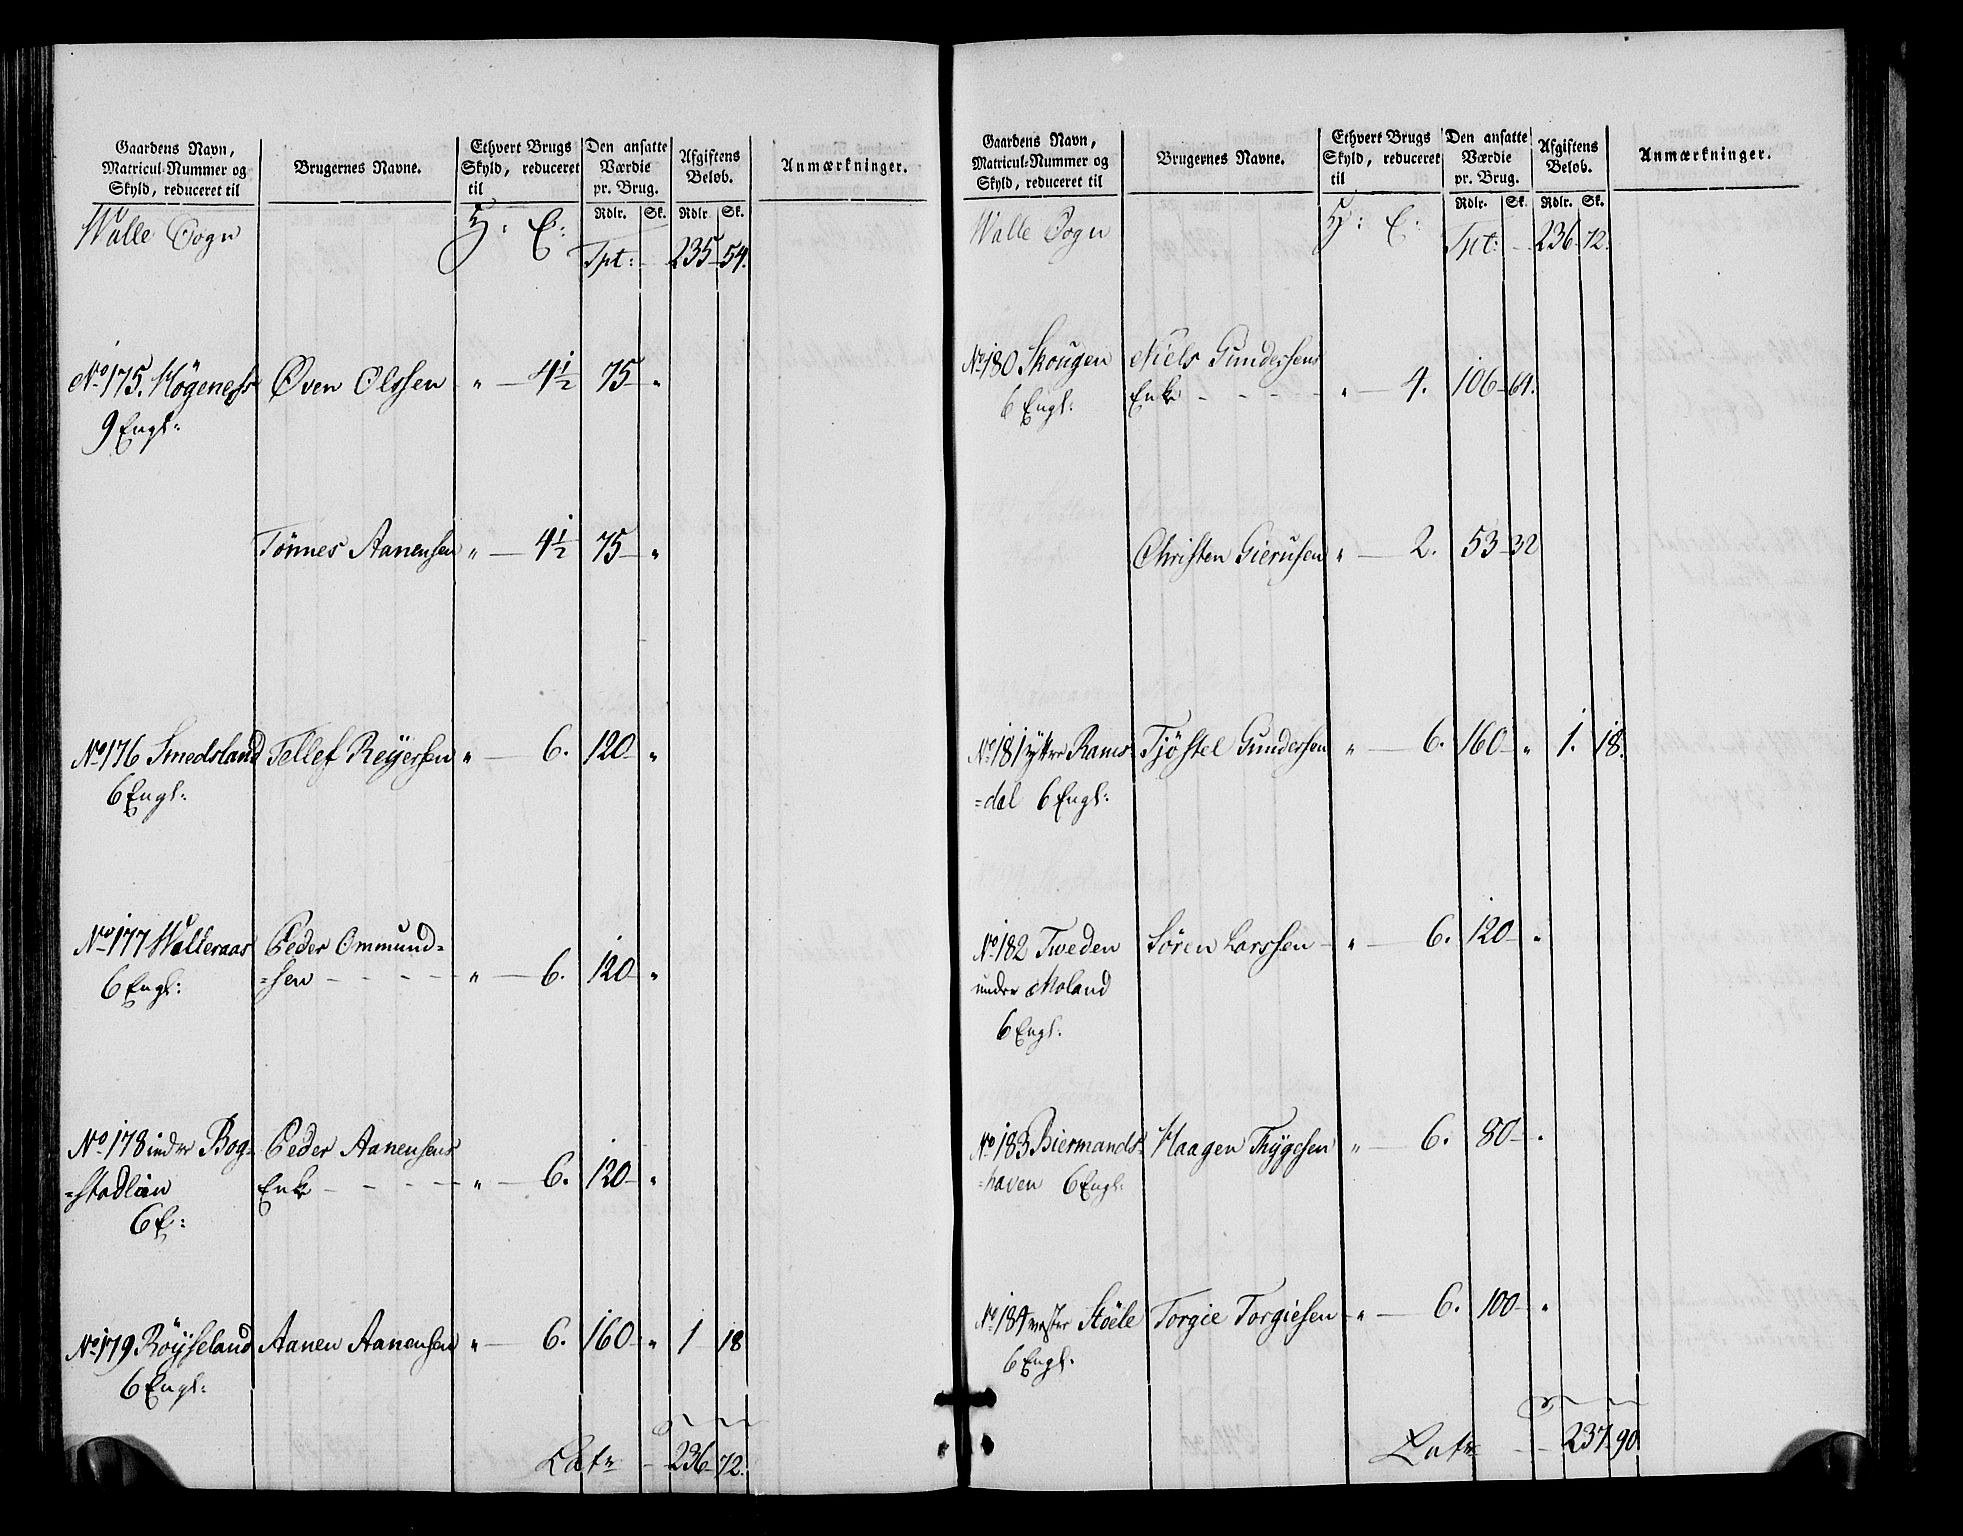 Gaardens Navn, Matricul-Nummer og Skyld, reduceret til
Brugernes Navne.
Ethvert Brugs Skyld, reduceret til
Den ansatte Værdie pr. Brug.
Afgiftens Beløb.
Anmærkninger.
Rdlr. Sk. Rdlr Sk.
Walle Sogn
Tpt: - 235 - 54.
No 175. Høgeness Øven Olssen " - 4½ 75 - "
9 Engl:
Tønnes Aanensen " - 4½ 75 - "
No 176 Smedsland Tellef Reyersen " - 6. 120 - "
6 Engl:
No 177 Walleraas Peder Ommund=
6 Engl: =sen - - - - " - 6. 120 - "
No 178 indre Bog= Peder Aanensens
=stadlien Enke - - - - " - 6. 120 - "
6 E:
No 179 Röyseland Aanen Aanensen " - 6. 160 - " 1 18
6 Engl:
Latr - 236 - 72.
Gaardens Navn, Matricul-Nummer og Skyld, reduceret til
Brugernes Navne.
Ethvert Brugs Skyld, reduceret til
Den ansatte Værdie pr. Brug.
Afgiftens Beløb.
Anmærkninger.
Rdlr. Sk. Rdlr. Sk.
Walle Sogn
Tpt: - 236 - 72.
No 180 Skougen Niels Gundersens
6 Engl: Enke - - - - " - 4. 106 - 64.
Christen Gierusen " - 2. 53 - 32
No 181 yttre Rams Tjöstel Gundersen " - 6. 160 - " 1. 18.
=dal 6 Engl:
No 182 Tweden Sören Larssen - " - 6. 120 - "
under Moland
6 Engl.
No 183 Biermands= Haagen Thygesen " - 6. 80 - "
=haven 6 Engl:
No 184 vester Stöele Torgie Torgiesen - " - 6. 100 - "
6 Engl:
Latr - - 237 - 90